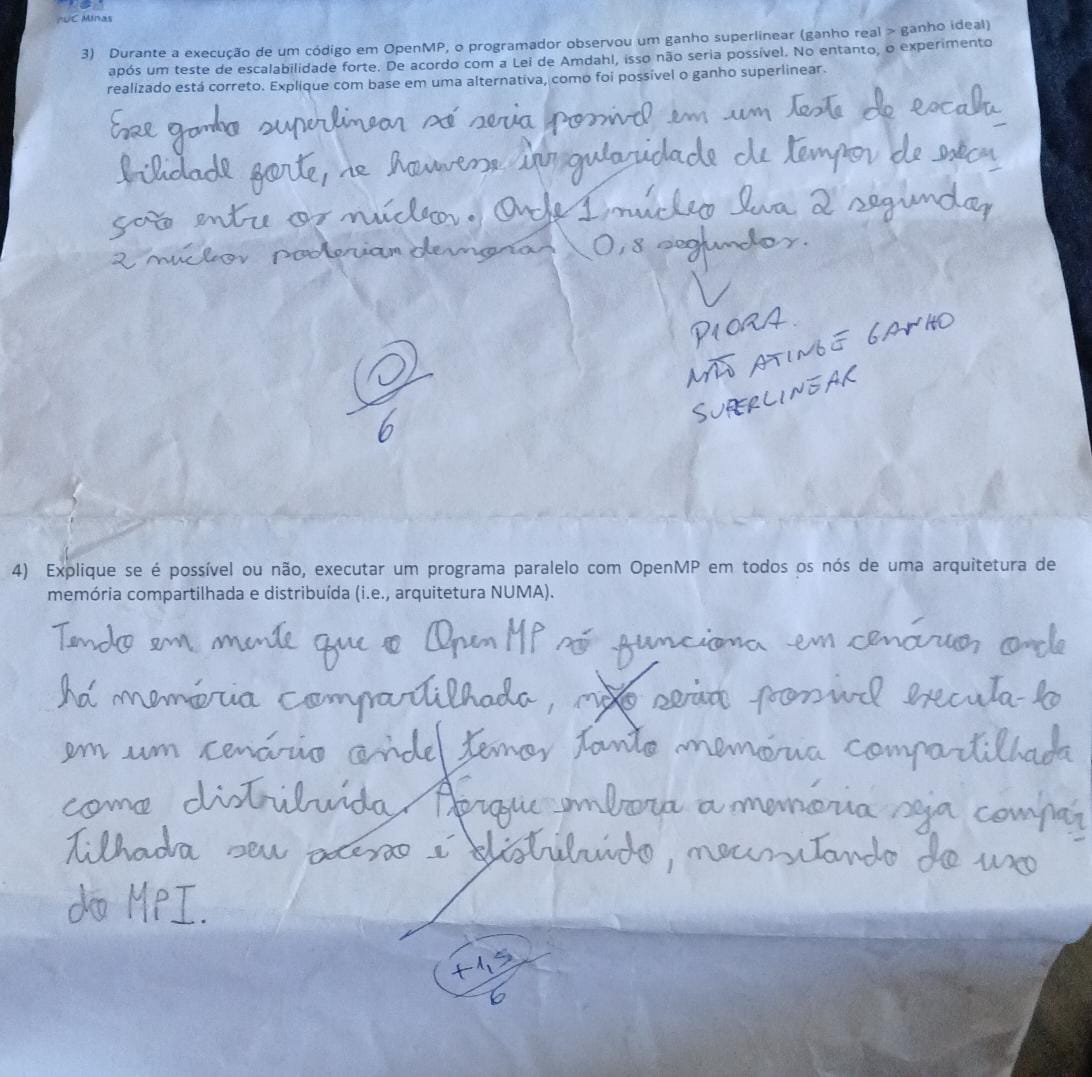 PUC Minas
3) Durante a execução de um código em OpenMP, o programador observou um ganho superlinear (ganho real > ganho ideal)
após um teste de escalabilidade forte. De acordo com a Lei de Amdahl, isso não seria possível. No entanto, o experimento
realizado está correto. Explique com base em uma alternativa, como foi possível o ganho superlinear.
Esse ganho superlinear só seria possivel em um teste de escala_
bilidade forte, se houvesse irregularidade de tempos de execu_
ção entre os núcleos. Onde 1 núcleo leva 2 segundos,
2 núcleos poderiam demorar 0,8 segundos.
PIORA.
NÃO ATINGE GANHO
SUPERLINEAR
0
6
4) Explique se é possível ou não, executar um programa paralelo com OpenMP em todos os nós de uma arquitetura de
memória compartilhada e distribuída (i.e., arquitetura NUMA).
Tendo em mente que o OpenMP só funciona em cenários onde
há memória compartilhada, não seria possivel executa-lo
em um cenário onde temos tanto memória compartilhada
como distribuída. Porque embora a memória seja compar_
tilhada seu acesso é distribuído, necessitando do uso
do MPI.
+1,5
6